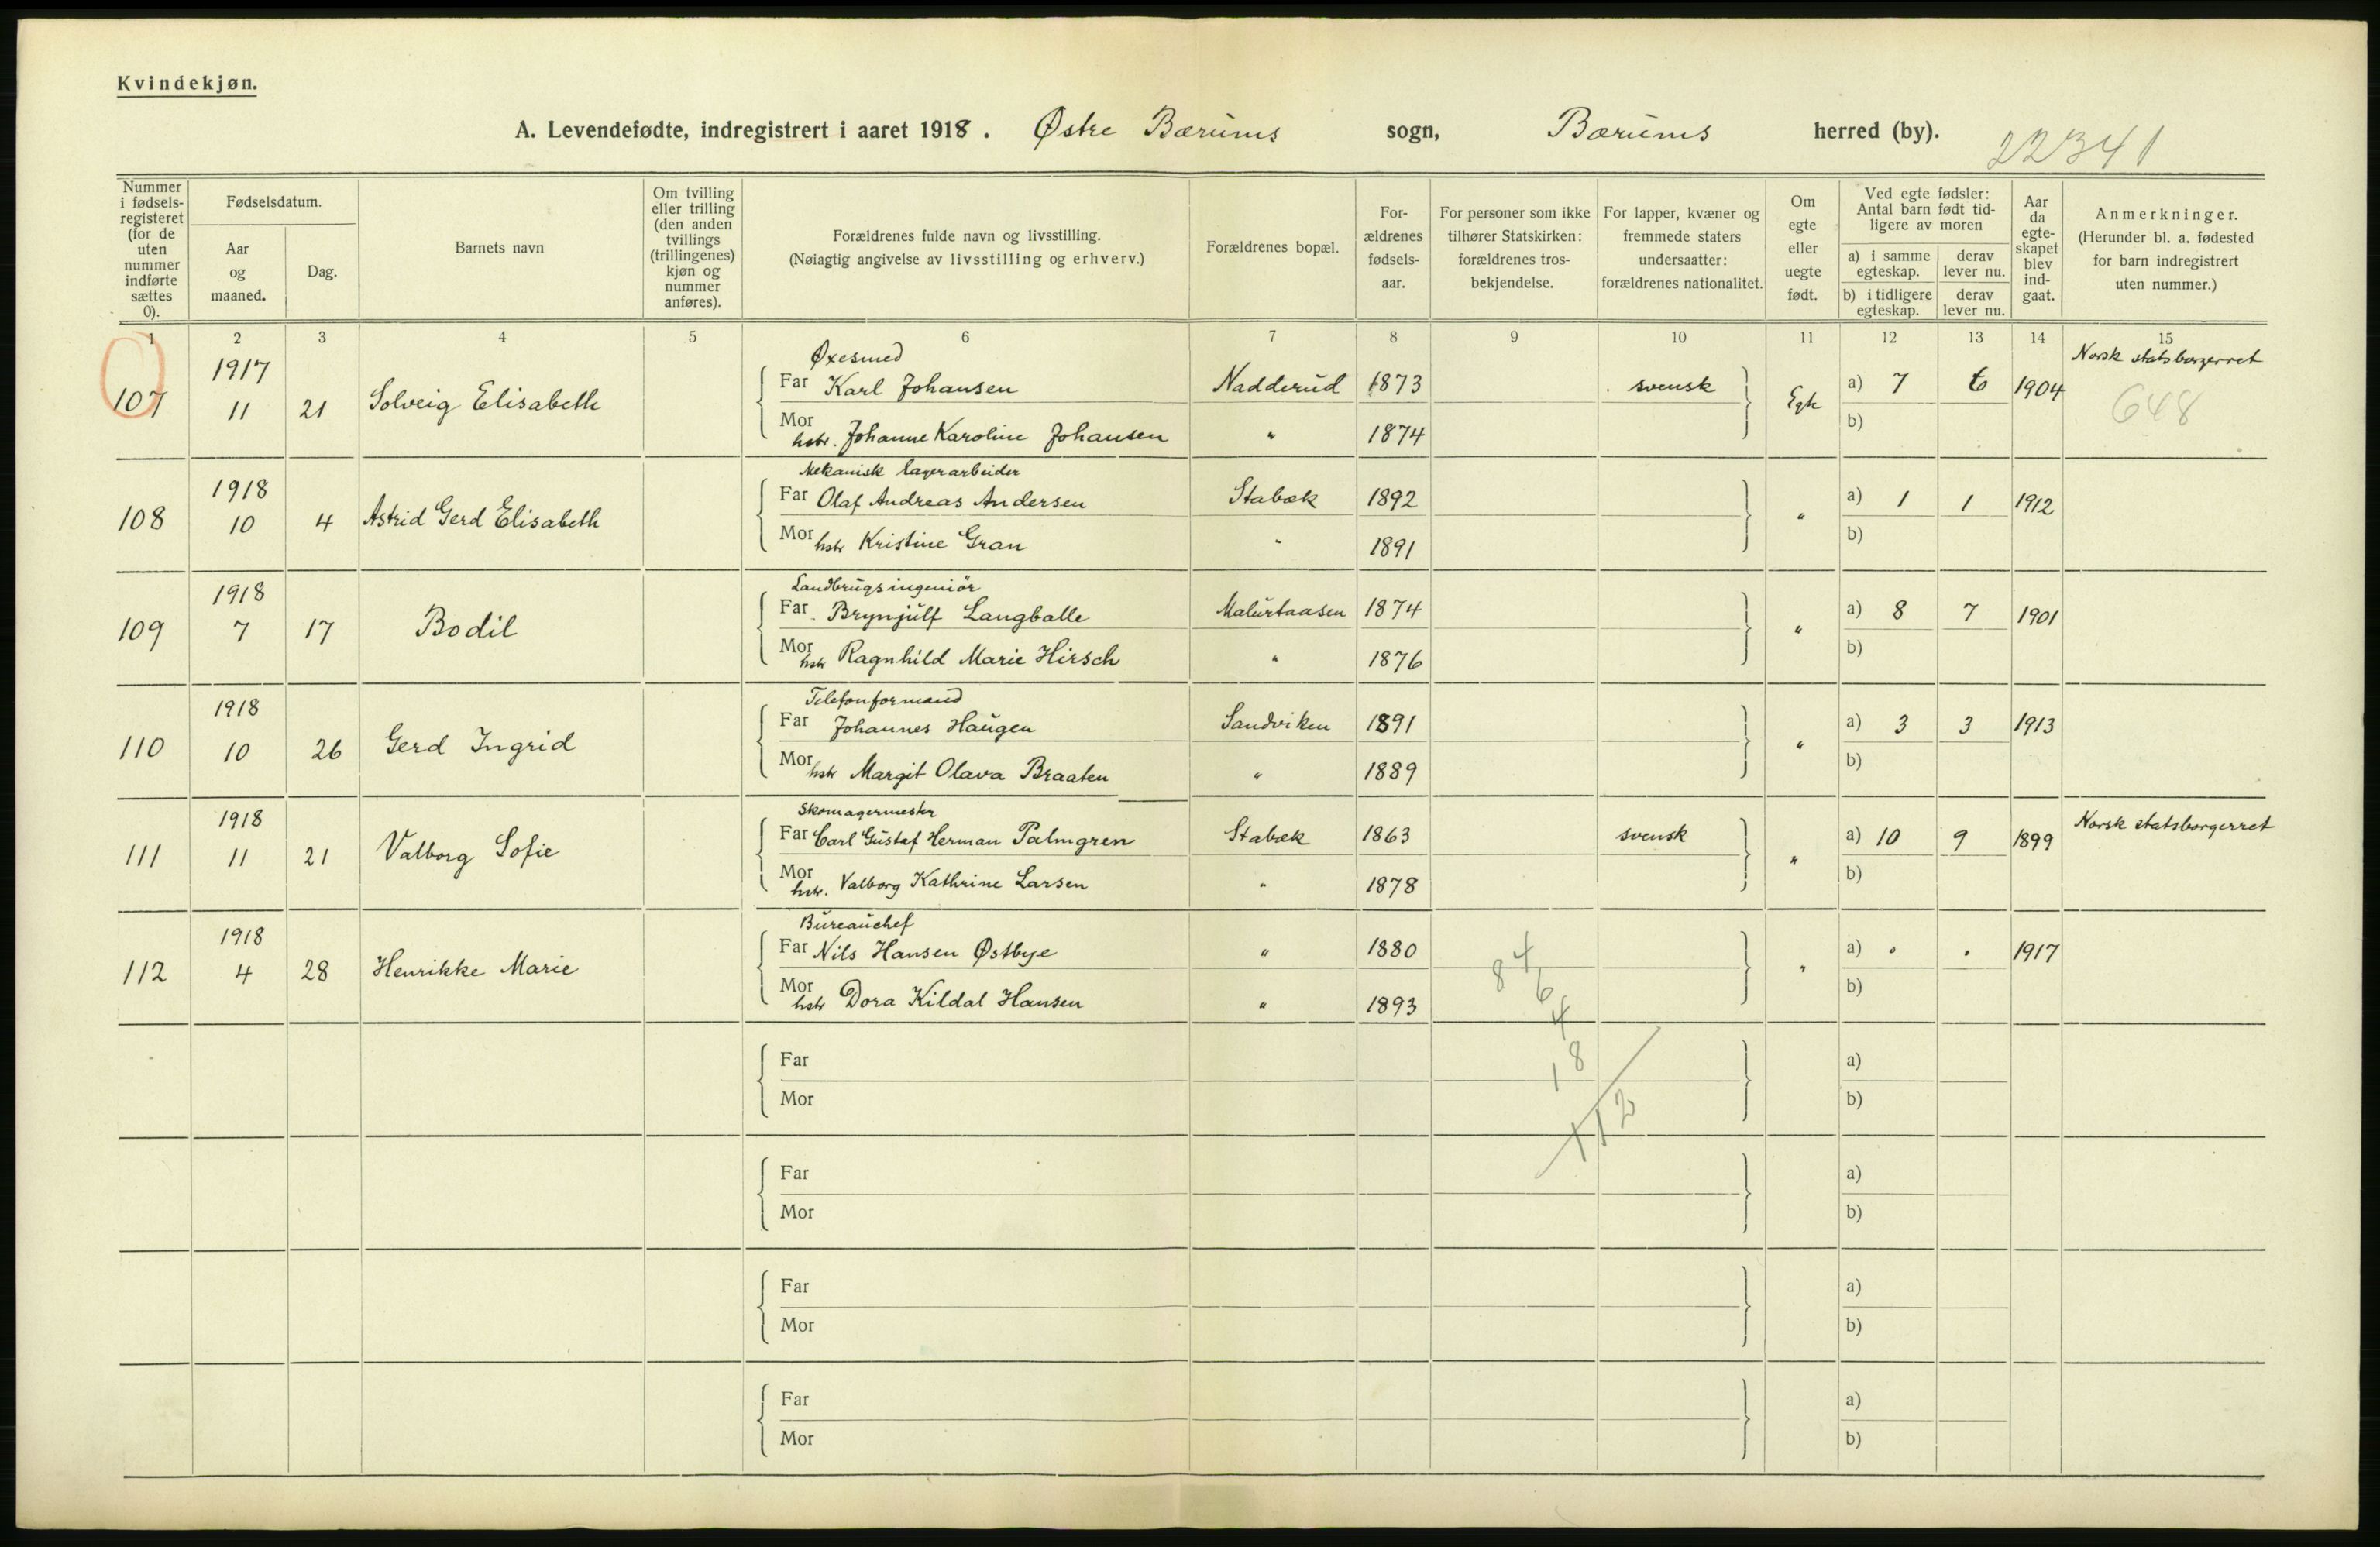 Kvindekjøn.
A. Levendefødte, indregistrert i aaret 1918. Østre Bærums sogn, Bærums herred (by).
22341
Nummer i fødsels-registeret (for de uten nummer indførte sættes 0).
Fødselsdatum.
Aar og maaned.
Dag.
Barnets navn
Om tvilling eller trilling (den anden tvillings (trillingenes) kjøn og nummer anføres).
Forældrenes fulde navn og livsstilling.
(Nøiagtig angivelse av livsstilling og erhverv.)
Forældrenes bopæl.
For-ældrenes fødsels-aar.
For personer som ikke tilhører Statskirken: forældrenes tros-bekjendelse.
For lapper, kvæner og fremmede staters undersaatter: forældrenes nationalitet.
Om egte eller uegte født.
Ved egte fødsler: Antal barn født tid-ligere av moren
a) i samme egteskap.
derav lever nu.
b) i tidligere egteskap.
derav lever nu.
Aar da egte-skapet blev ind-gaat.
Anmerkninger.
(Herunder bl. a. fødested for barn indregistrert uten nummer.)
1 2 3 4 5 6 7 8 9 10 11 12 13 14 15
1917 Øxesmed Norsk statsborgerret
107 11 21 Solveig Elisabeth Far Karl Johansen Nadderud 1873 svensk Egte a) 7 6 1904
648
Mor hstr. Johanne Karoline Johansen " 1874 b)
1918 Mekanisk lagerarbeider
108 10 4 Astrid Gerd Elisabeth Far Olaf Andreas Andersen Stabæk 1892 " a) 1 1 1912
Mor hstr Kristine Gran " 1891 b)
1918 Landbrugsingeniör
109 7 17 Bodil Far Brynjulf Langballe Malurtaasen 1874 " a) 8 7 1901
Mor hstr Ragnhild Marie Hirsch " 1876 b)
1918 Telefonformand
110 10 26 Gerd Ingrid Far Johannes Haugen Sandviken 1891 " a) 3 3 1913
Mor hstr Margit Olava Braaten " 1889 b)
1918 Skomagermester Norsk statsborgerret
111 11 21 Valborg Sofie Far Carl Gustaf Herman Palmgren Stabæk 1863 svensk " a) 10 9 1899
Mor hstr. Valborg Kathrine Larsen " 1878 b)
1918 Bureauchef
112 4 28 Henrikke Marie Far Nils Hansen Østbye " 1880 " a) 0 0 1917
Mor hstr Dora Kildal Hansen " 1893 b)
84
6
4
18
112
Far a)
Mor b)
Far a)
Mor b)
Far a)
Mor b)
Far a)
Mor b)